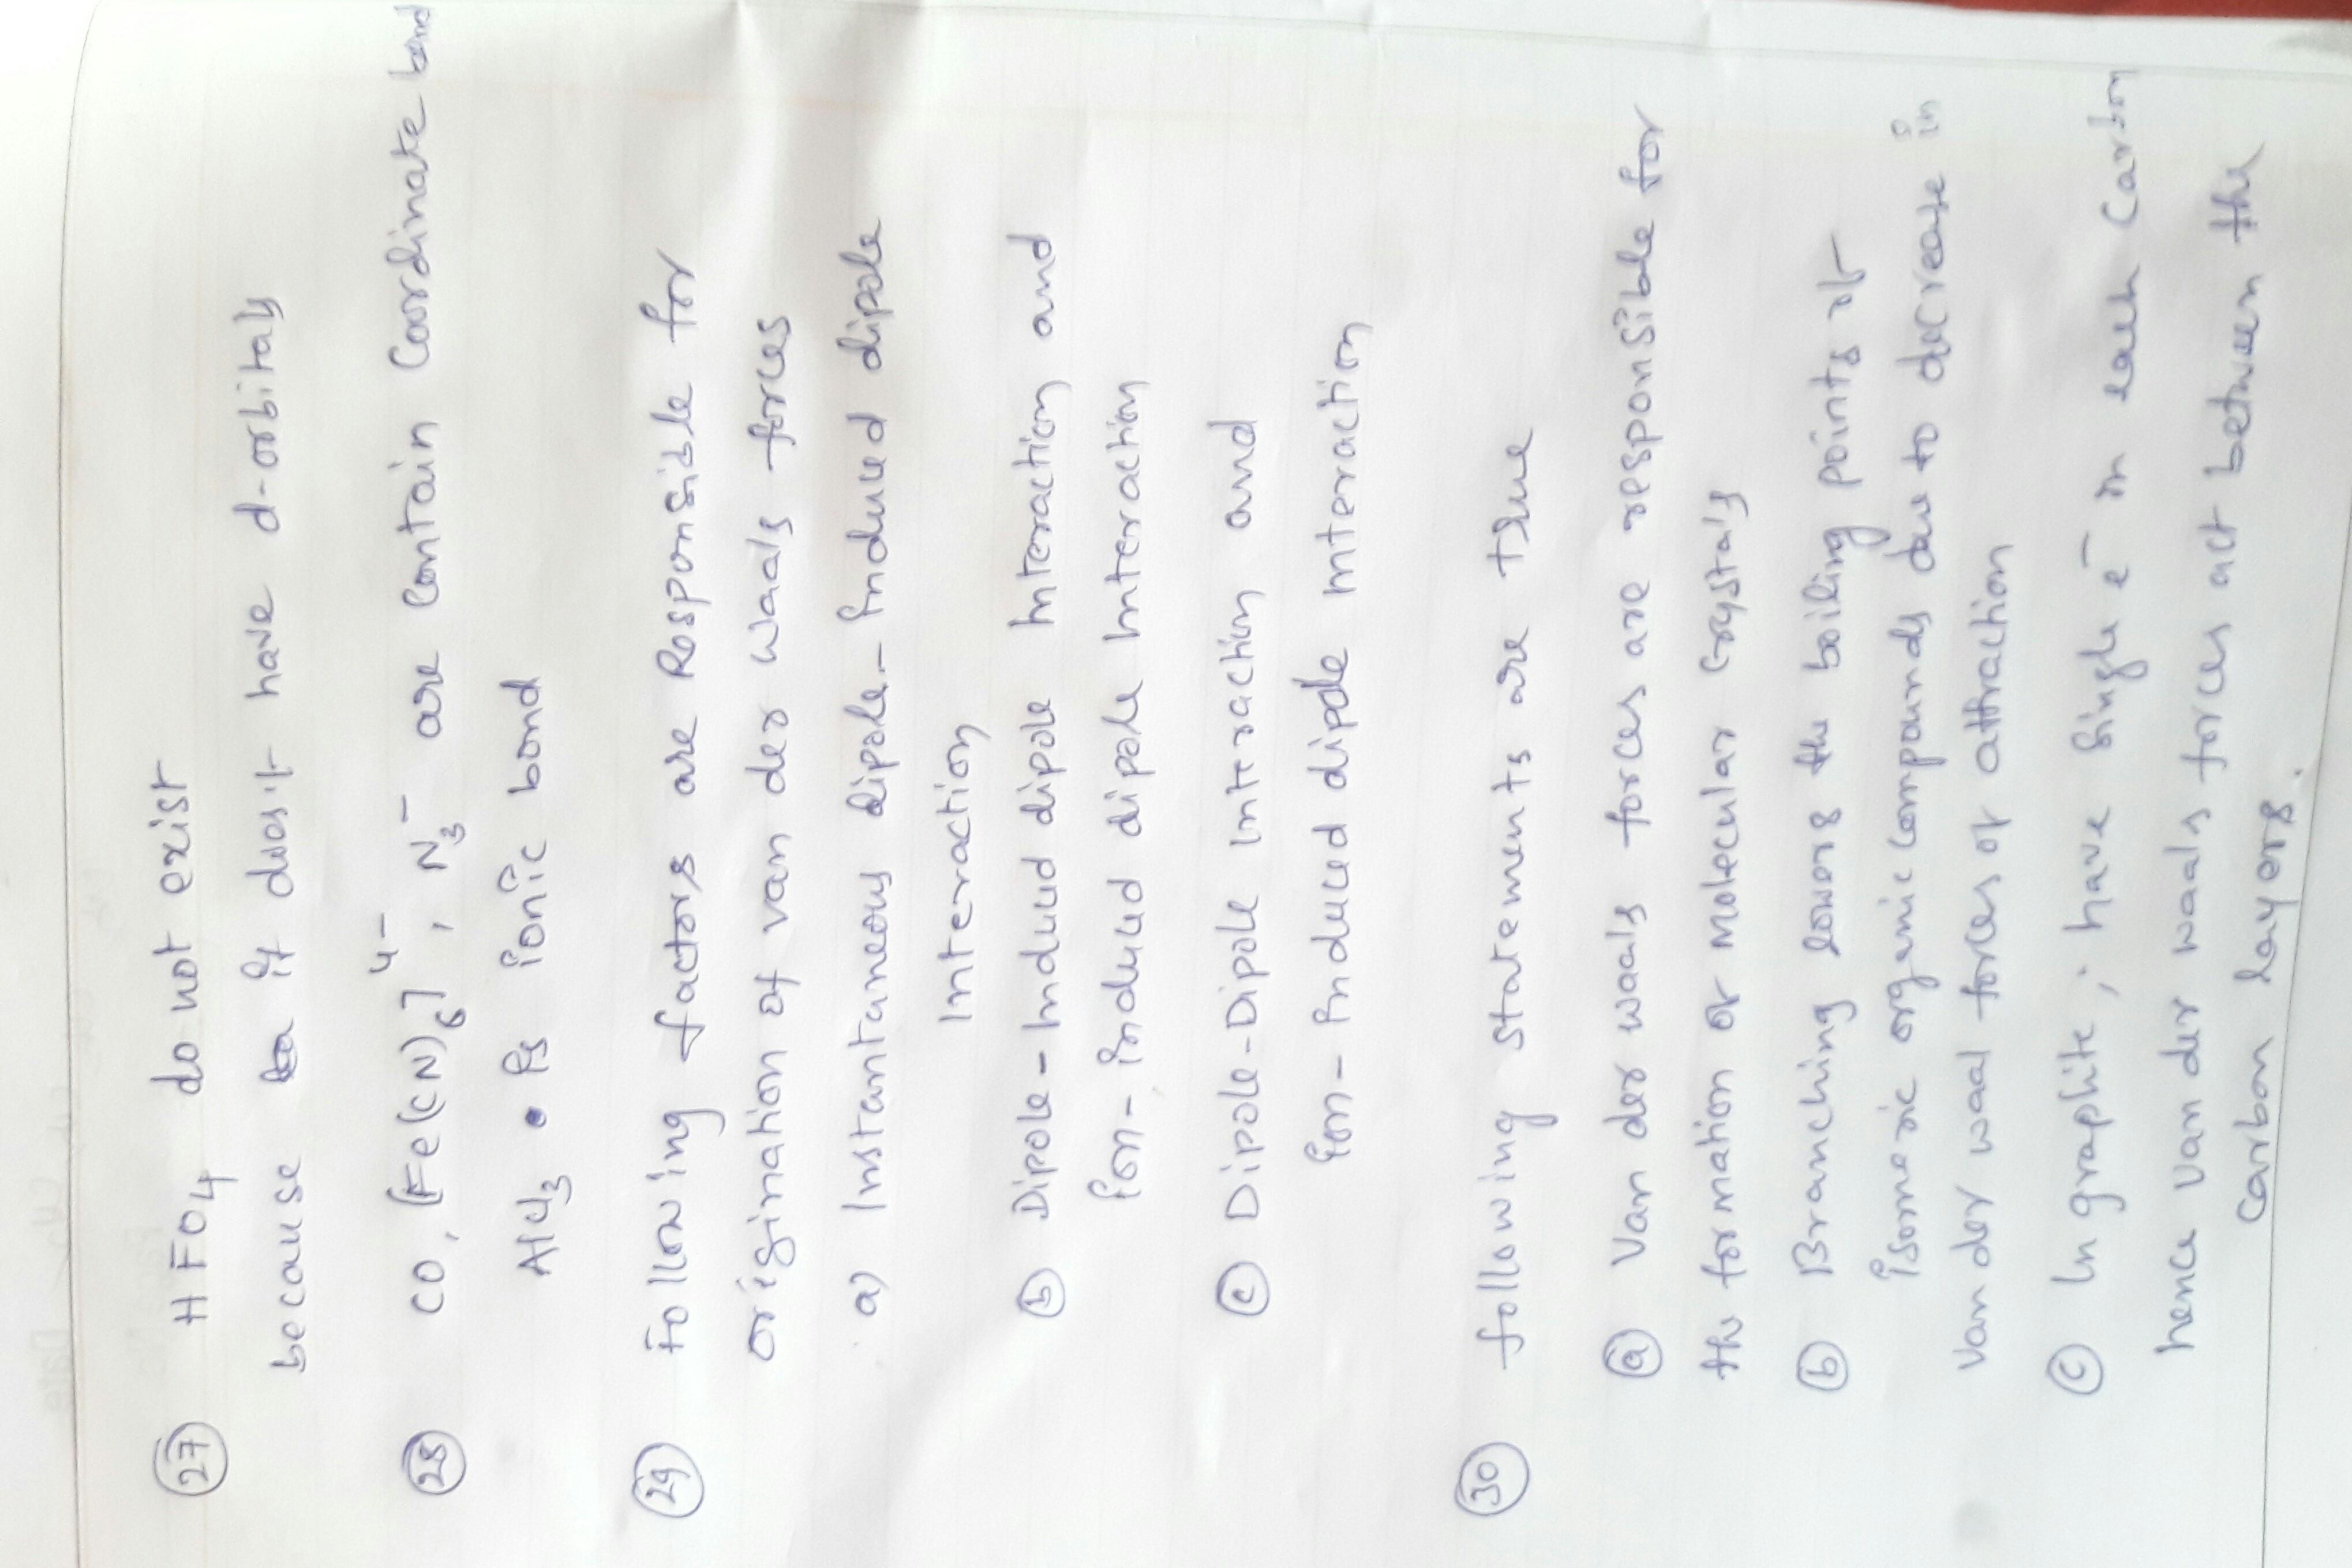 27 HFO4 do not exist
because it does't have d-orbitals
28 CO, [Fe(CN)6]4-, N3- are contain Coordinate bond
AlCl3 is ionic bond
29 Following factors are Responsible for
origination of van der waals forces
a) Instantaneous dipole-induced dipole
Interaction
b Dipole-Induced dipole Interaction and
ion-induced dipole Interaction
c Dipole-Dipole Interaction and
ion-induced dipole interaction
30 following statements are true
a Van der waals forces are responsible for
the formation of molecular crystals
b Branching lowers the boiling points of
isomeric organic compounds due to decrease in
Van der waal forces of attraction
c In graphite; have single e- in each Carbon
hence van der waals forces act between the
Carbon layers.